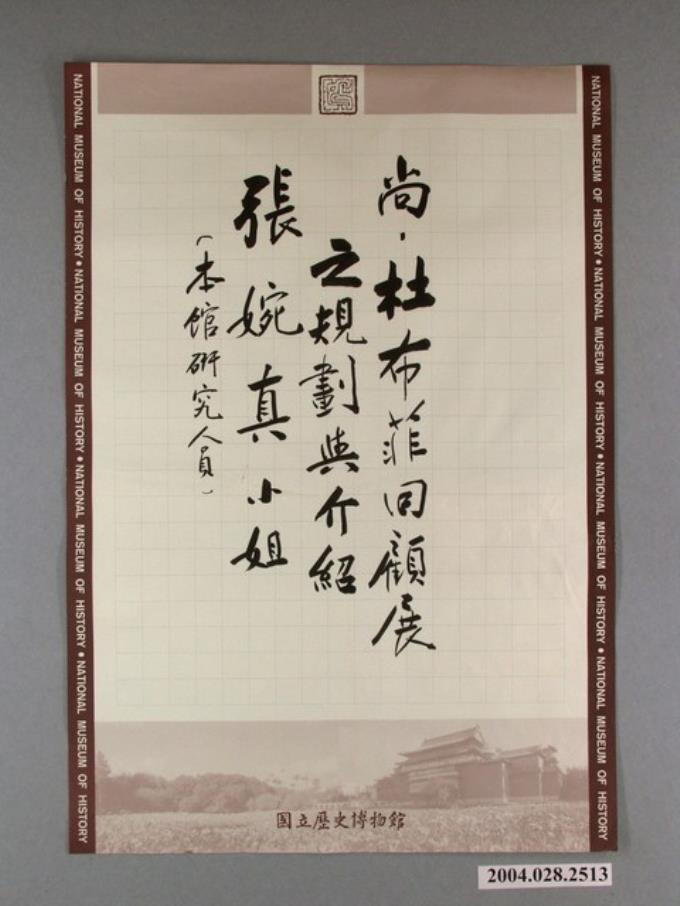 尚·杜布菲回顧展
之規劃與介紹
張婉真小姐
（本館研究人員）
國立歷史博物館
NATIONAL MUSEUM OF HISTORY • NATIONAL MUSEUM OF HISTORY • NATIONAL MUSEUM OF HISTORY • NATIONAL MUSEUM OF HISTORY
NATIONAL MUSEUM OF HISTORY • NATIONAL MUSEUM OF HISTORY • NATIONAL MUSEUM OF HISTORY • NATIONAL MUSEUM OF HISTORY
2004.028.2513